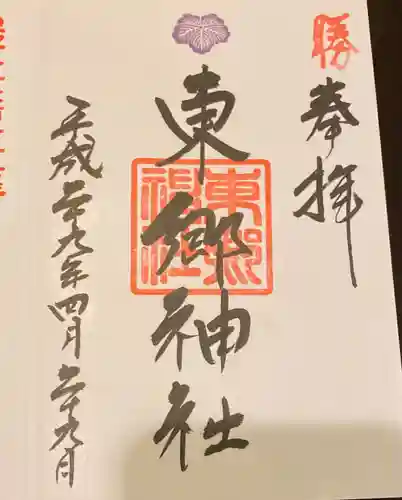 勝
奉拝
東郷神社
東郷神社
平成二十九年四月二十九日